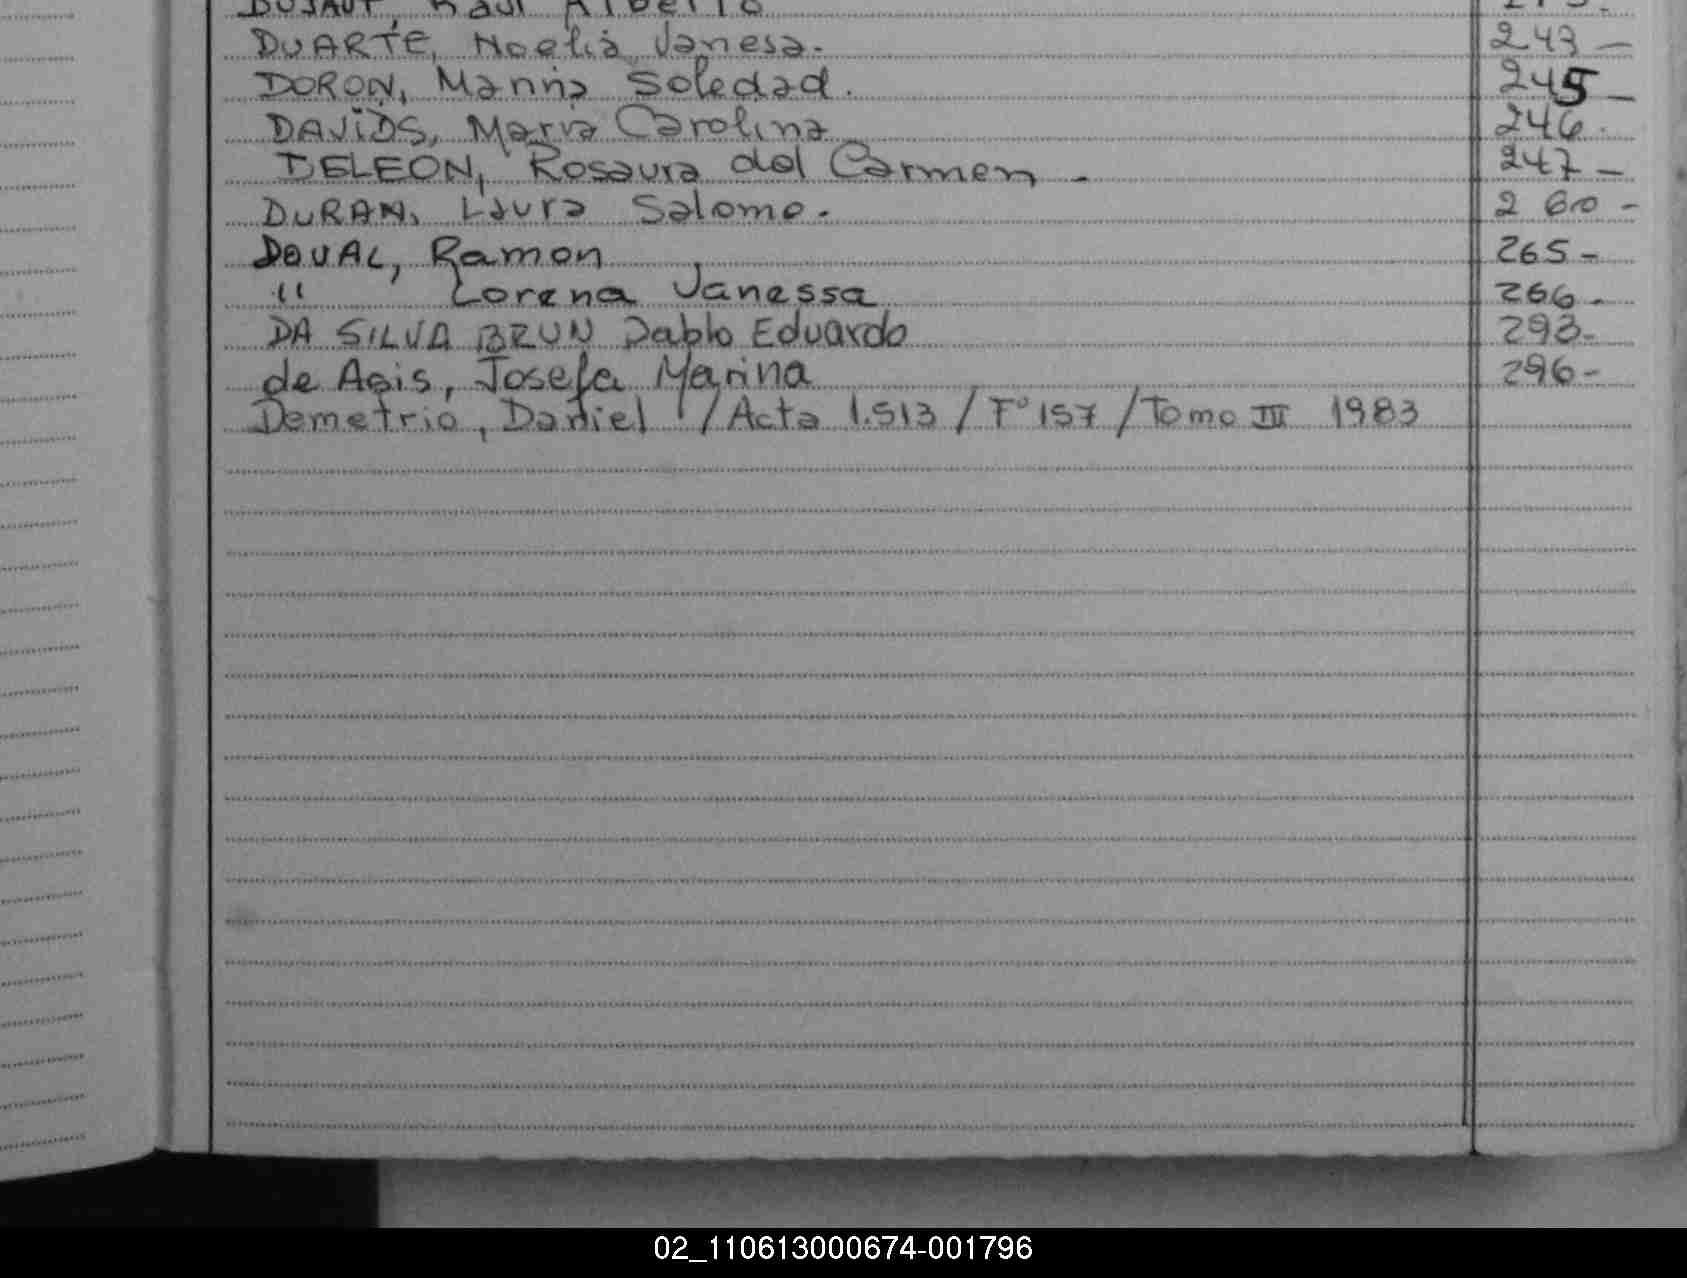 DUARTE, Noelia Vanesa. 243 -
DORON, Marina Soledad. 245 -
DAViDS, Maria Carolina 246.
DELEON, Rosaura del Carmen - 247 -
DURAN, Laura Salome. 260 -
DOUAL, Ramon 265 -
" Lorena Vanessa 266 -
DA SILVA BRUN Pablo Eduardo 293 -
de Asis, Josefa Marina 296 -
Demetrio, Daniel / Acta 1.513 / F° 157 / Tomo III 1983
02_110613000674-001796